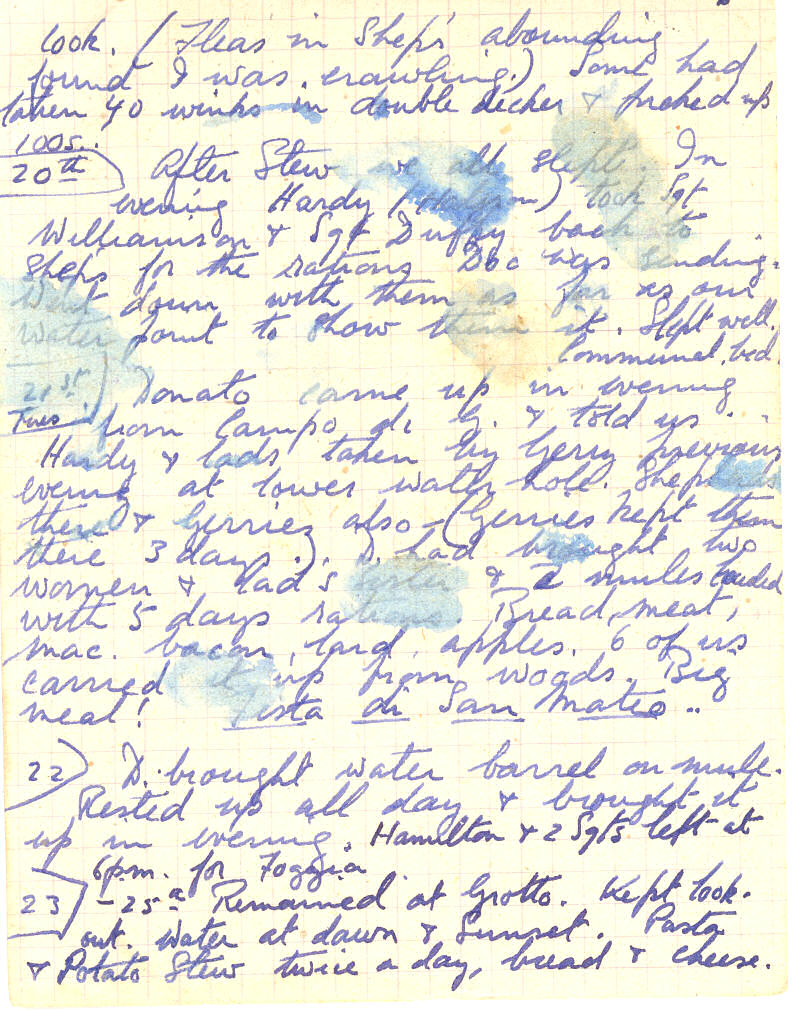 look. (Fleas in Shep's abounding
found I was crawling.) Some had
taken 40 winks in double decker & poched up
1005.
20th) After Stew we all slept. In
evening Hardy (Hodgson) took Sgt
Williamson & Sgt Duffy back to
Sheps for the rations Doc was sending.
Went down with them as far as our
water point to show them it. Slept well.
Communal bed.
21st) Donato came up in evening
Tues from Campo di G. & told us
Hardy & lads taken by Gerry previous
evening at lower water hole. Shepherds
there & Gerries also - (Gerries kept them
there 3 days.). D. had brought two
women & lad's sister & 2 mules loaded
with 5 days rations. Bread, meat,
mac. bacon, lard, apples. 6 of us
carried it up from woods. Big
meal! Festa di San Mateo..
22) D. brought water barrel on mule.
Rested up all day & brought it
up in evening. Hamilton & 2 Sgts left at
6pm. for Foggia
23) - 25th Remained at Grotto. Kept look.
out. Water at dawn & Sunset. Pasta
& Potato Stew twice a day, bread & cheese.